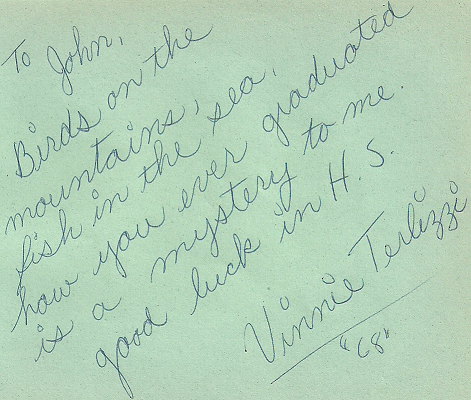 To John,
Birds on the
mountains,
fish in the sea,
how you ever graduated
is a mystery to me.
good luck in H.S.
Vinnie Terlizzi
"68"